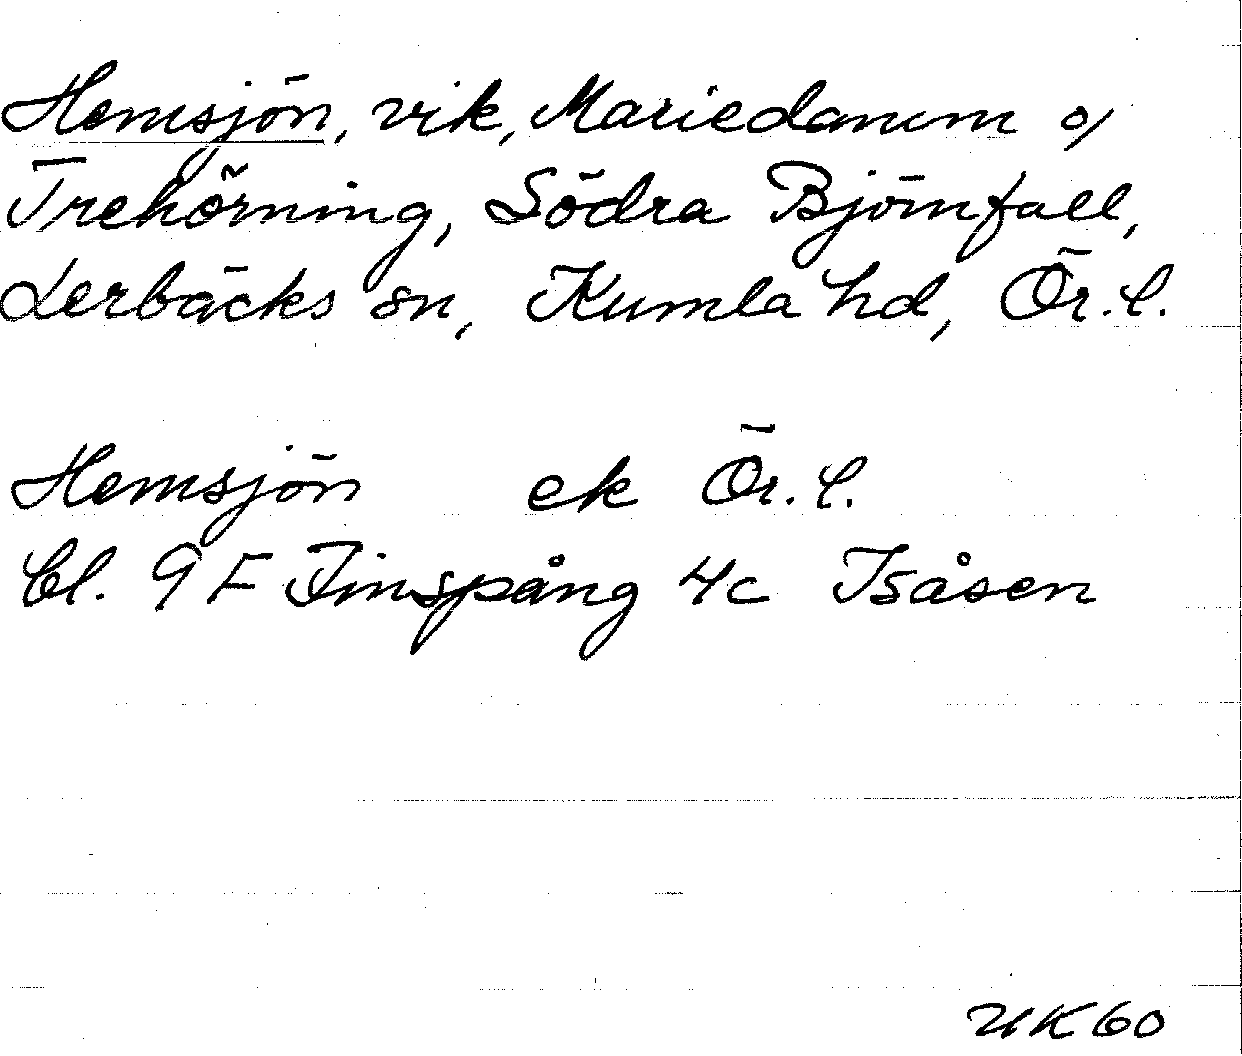 Hemsjön, vik, Mariedamm o/
Trehörning, Södra Björnfall,
Lerbäcks sn, Kumla hd, Ör. l.
Hemsjön ek Ör. l.
Bl. 9 F Finspång 4c Isåsen
UK 60